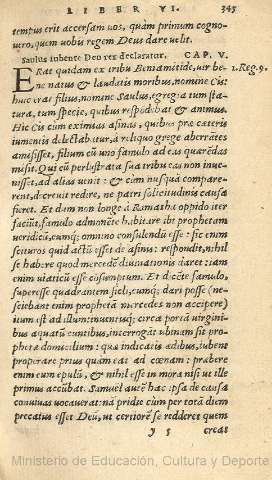 LIBER VI. 345
tempus erit accersam uos, quàm primum cogno-
uero, quem uobis regem Deus dare uelit.
Saulus iubente Deo rex declaratur. CAP. V.
ERat quidam ex tribu Beniamitide, uir be- 1. Reg. 9.
ne natus & laudatis moribus, nomine Cis:
huic erat filius, nomine Saulus, egregia tum sta-
tura, tum specie, quibus respōdebat & animus.
Hic Cis cum eximias asinas, quibus præ cæteris
iumentis delectabatur, à reliquo grege aberrātes
amisisset, filium cū uno famulo ad eas quærēdas
misit. Qui cū perlustrata sua tribu eas non inue-
nisset, ad alias uenit: & cùm nusquā compare-
rent, decreuit redire, ne patri solicitudinis causa
fieret. Et dum non longe à Ramatha oppido iter
faciūt, famulo admonēte habitare ibi prophetam
ueridicū, cumq; omnino consulendū esse: sic enim
scituros quid actū esset de asinis: respondit, nihil
se habere quod mercedē diuinationis daret: iam
enim uiaticū esse cōsumptum. Et dicēte famulo,
superesse quadrantem sicli, cumq; dari posse (ne-
sciebant enim prophetā mercedes non accipere)
itum est ad illum: inuentisq; circa portā uirgini-
bus aquatū euntibus, interrogāt ubinam sit pro-
phetæ domicilium: quæ indicatis ædibus, iubent
properare prius quàm eat ad cœnam: præbere
enim eum epulū, & nihil esse in mora nisi ut ille
primus accubat. Samuel autē hac ipsa de causa
conuiuas uocauerat: nā pridie cùm per totā diem
precatus esset Deū, ut certiorē se redderet quem
y 5 creat
Ministerio de Educación, Cultura y Deporte